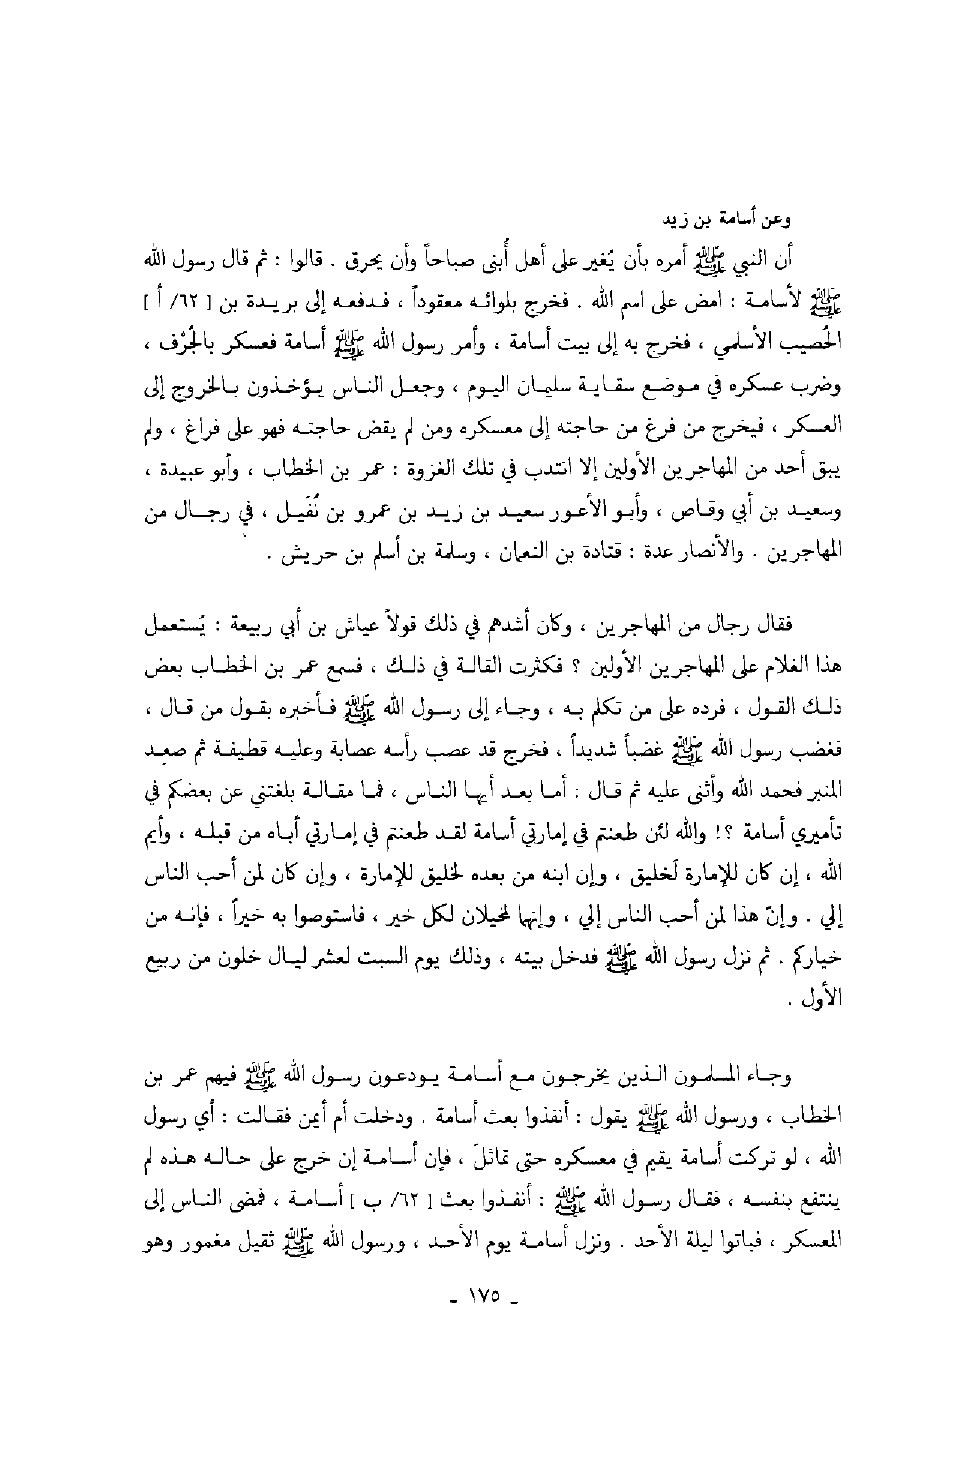 وعن أسامة بن زيد
أن النبي ﷺ أمره بأن يُغير على أهل أُبنى صباحاً وأن يحرق . قالوا : ثم قال رسول الله
ﷺ لأسامة : امض على اسم الله . فخرج بلوائه معقوداً ، فدفعه إلى بريدة بن [ ٦٢/ أ ]
الحُصيب الأسلمي ، فخرج به إلى بيت أسامة ، وأمر رسول الله ﷺ أسامة فعسكر بالجُرْف ،
وضرب عسكره في موضع سقاية سليمان اليوم ، وجعل الناس يؤخذون بالخروج إلى
العسكر ، فيخرج من فرغ من حاجته إلى معسكره ومن لم يقض حاجته فهو على فراغ ، ولم
يبق أحد من المهاجرين الأولين إلا انتدب في تلك الغزوة : عمر بن الخطاب ، وأبو عبيدة ،
وسعيد بن أبي وقاص ، وأبو الأعور سعيد بن زيد بن عمرو بن نُفَيل ، في رجال من
المهاجرين . والأنصار عدة : قتادة بن النعمان ، وسلمة بن أسلم بن حريش .
فقال رجال من المهاجرين ، وكان أشدهم في ذلك قولاً عياش بن أبي ربيعة : يُستعمل
هذا الغلام على المهاجرين الأولين ؟ فكثرت القالة في ذلك ، فسمع عمر بن الخطاب بعض
ذلك القول ، فرده على من تكلم به ، وجاء إلى رسول الله ﷺ فأخبره بقول من قال ،
فغضب رسول الله ﷺ غضباً شديداً ، فخرج قد عصب رأسه عصابة وعليه قطيفة ثم صعد
المنبر فحمد الله وأثنى عليه ثم قال : أما بعد أيها الناس ، فما مقالة بلغتني عن بعضكم في
تأميري أسامة ؟! والله لئن طعنتم في إمارتي أسامة لقد طعنتم في إمارتي أباه من قبله ، وأيم
الله ، إن كان للإمارة لَخليق ، وإن ابنه من بعده لخليق للإمارة ، وإن كان لمن أحب الناس
إلي . وإنّ هذا لمن أحب الناس إلي ، وإنهما لمخيلان لكل خير ، فاستوصوا به خيراً ، فإنه من
خياركم . ثم نزل رسول الله ﷺ فدخل بيته ، وذلك يوم السبت لعشر ليال خلون من ربيع
الأول .
وجاء المسلمون الذين يخرجون مع أسامة يودعون رسول الله ﷺ فيهم عمر بن
الخطاب ، ورسول الله ﷺ يقول : أنفذوا بعث أسامة . ودخلت أم أيمن فقالت : أي رسول
الله ، لو تركت أسامة يقيم في معسكره حتى تماثل ، فإن أسامة إن خرج على حاله هذه لم
ينتفع بنفسه ، فقال رسول الله ﷺ : أنفذوا بعث [ ٦٢/ ب ] أسامة ، فمضى الناس إلى
المعسكر ، فباتوا ليلة الأحد . ونزل أسامة يوم الأحد ، ورسول الله ﷺ ثقيل مغمور وهو
ـ ١٧٥ ـ